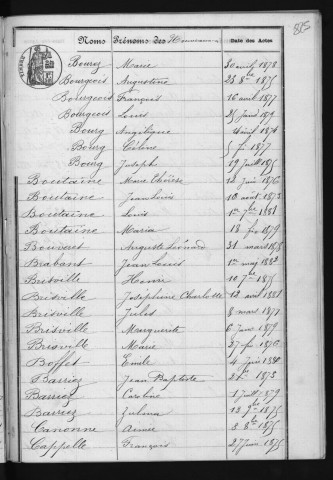 815
Noms Prénoms des Date des Actes
Bourez Marie 30 avril 1878
Bourgeois Augustine 23 8bre 1875
Bourgeois François 16 avril 1877
Bourgeois Louis 25 janv 1879
Bourg Angélique 4 août 1874
Bourg Céline 5 1877
Bourg Joseph 19 Juill 1875
Boutaine Marie Thérèse 12 Juin 1876
Boutaine Jean Louis 10 août 1873
Boutaine Louis 1er 7bre 1881
Boutaine Maria 18 fév 1879
Bousset Auguste Léonard 31 mars 1878
Brabant Jean Louis 1er mai 1882
Brisville Henri 10 7bre 1875
Brisville Joséphine Charlotte 12 avril 1881
Brisville Jules 8 mars 1877
Brisville Marguerite 6 janv 1879
Brisville Marie 27 fév 1876
Boffet Emile 4 Juin 1880
Barriez Jean Baptiste 1873
Barriez Caroline 1 juillet 1879
Barriez Zulma 13 7bre 1875
Canonne Aimée 8 8bre 1875
Cappelle François 27 Juin 1875